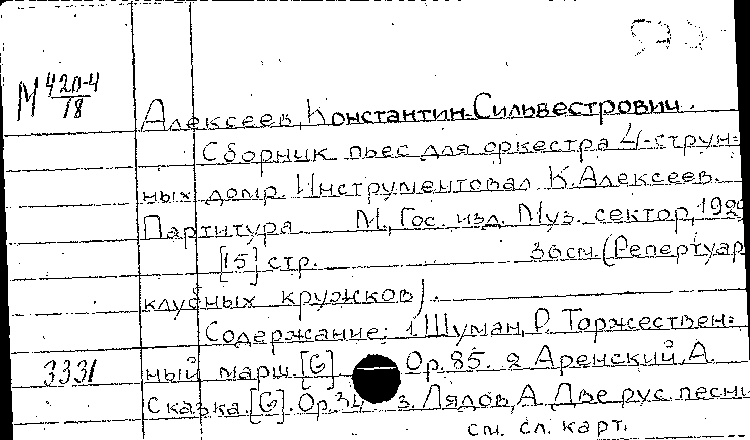 М 42п-4
18
Алексеев, Константин Сильвестрович.
Сборник пьес для оркестра 4-струн=
ных домр. Инструментовал К. Алексеев.
Партитура М., Гос. изд. Муз. сектор, 1929
[15] стр. 36см. (Репертуар
клубных кружков).
Содержание: 1. Шуман, Р. Торжествен=
3331 ный марш. [G] Ор. 85. 2 Аренский, А.
Сказка. [G]. Ор. 34 3. Лядов, А. Две рус. песни
см. сл. карт.